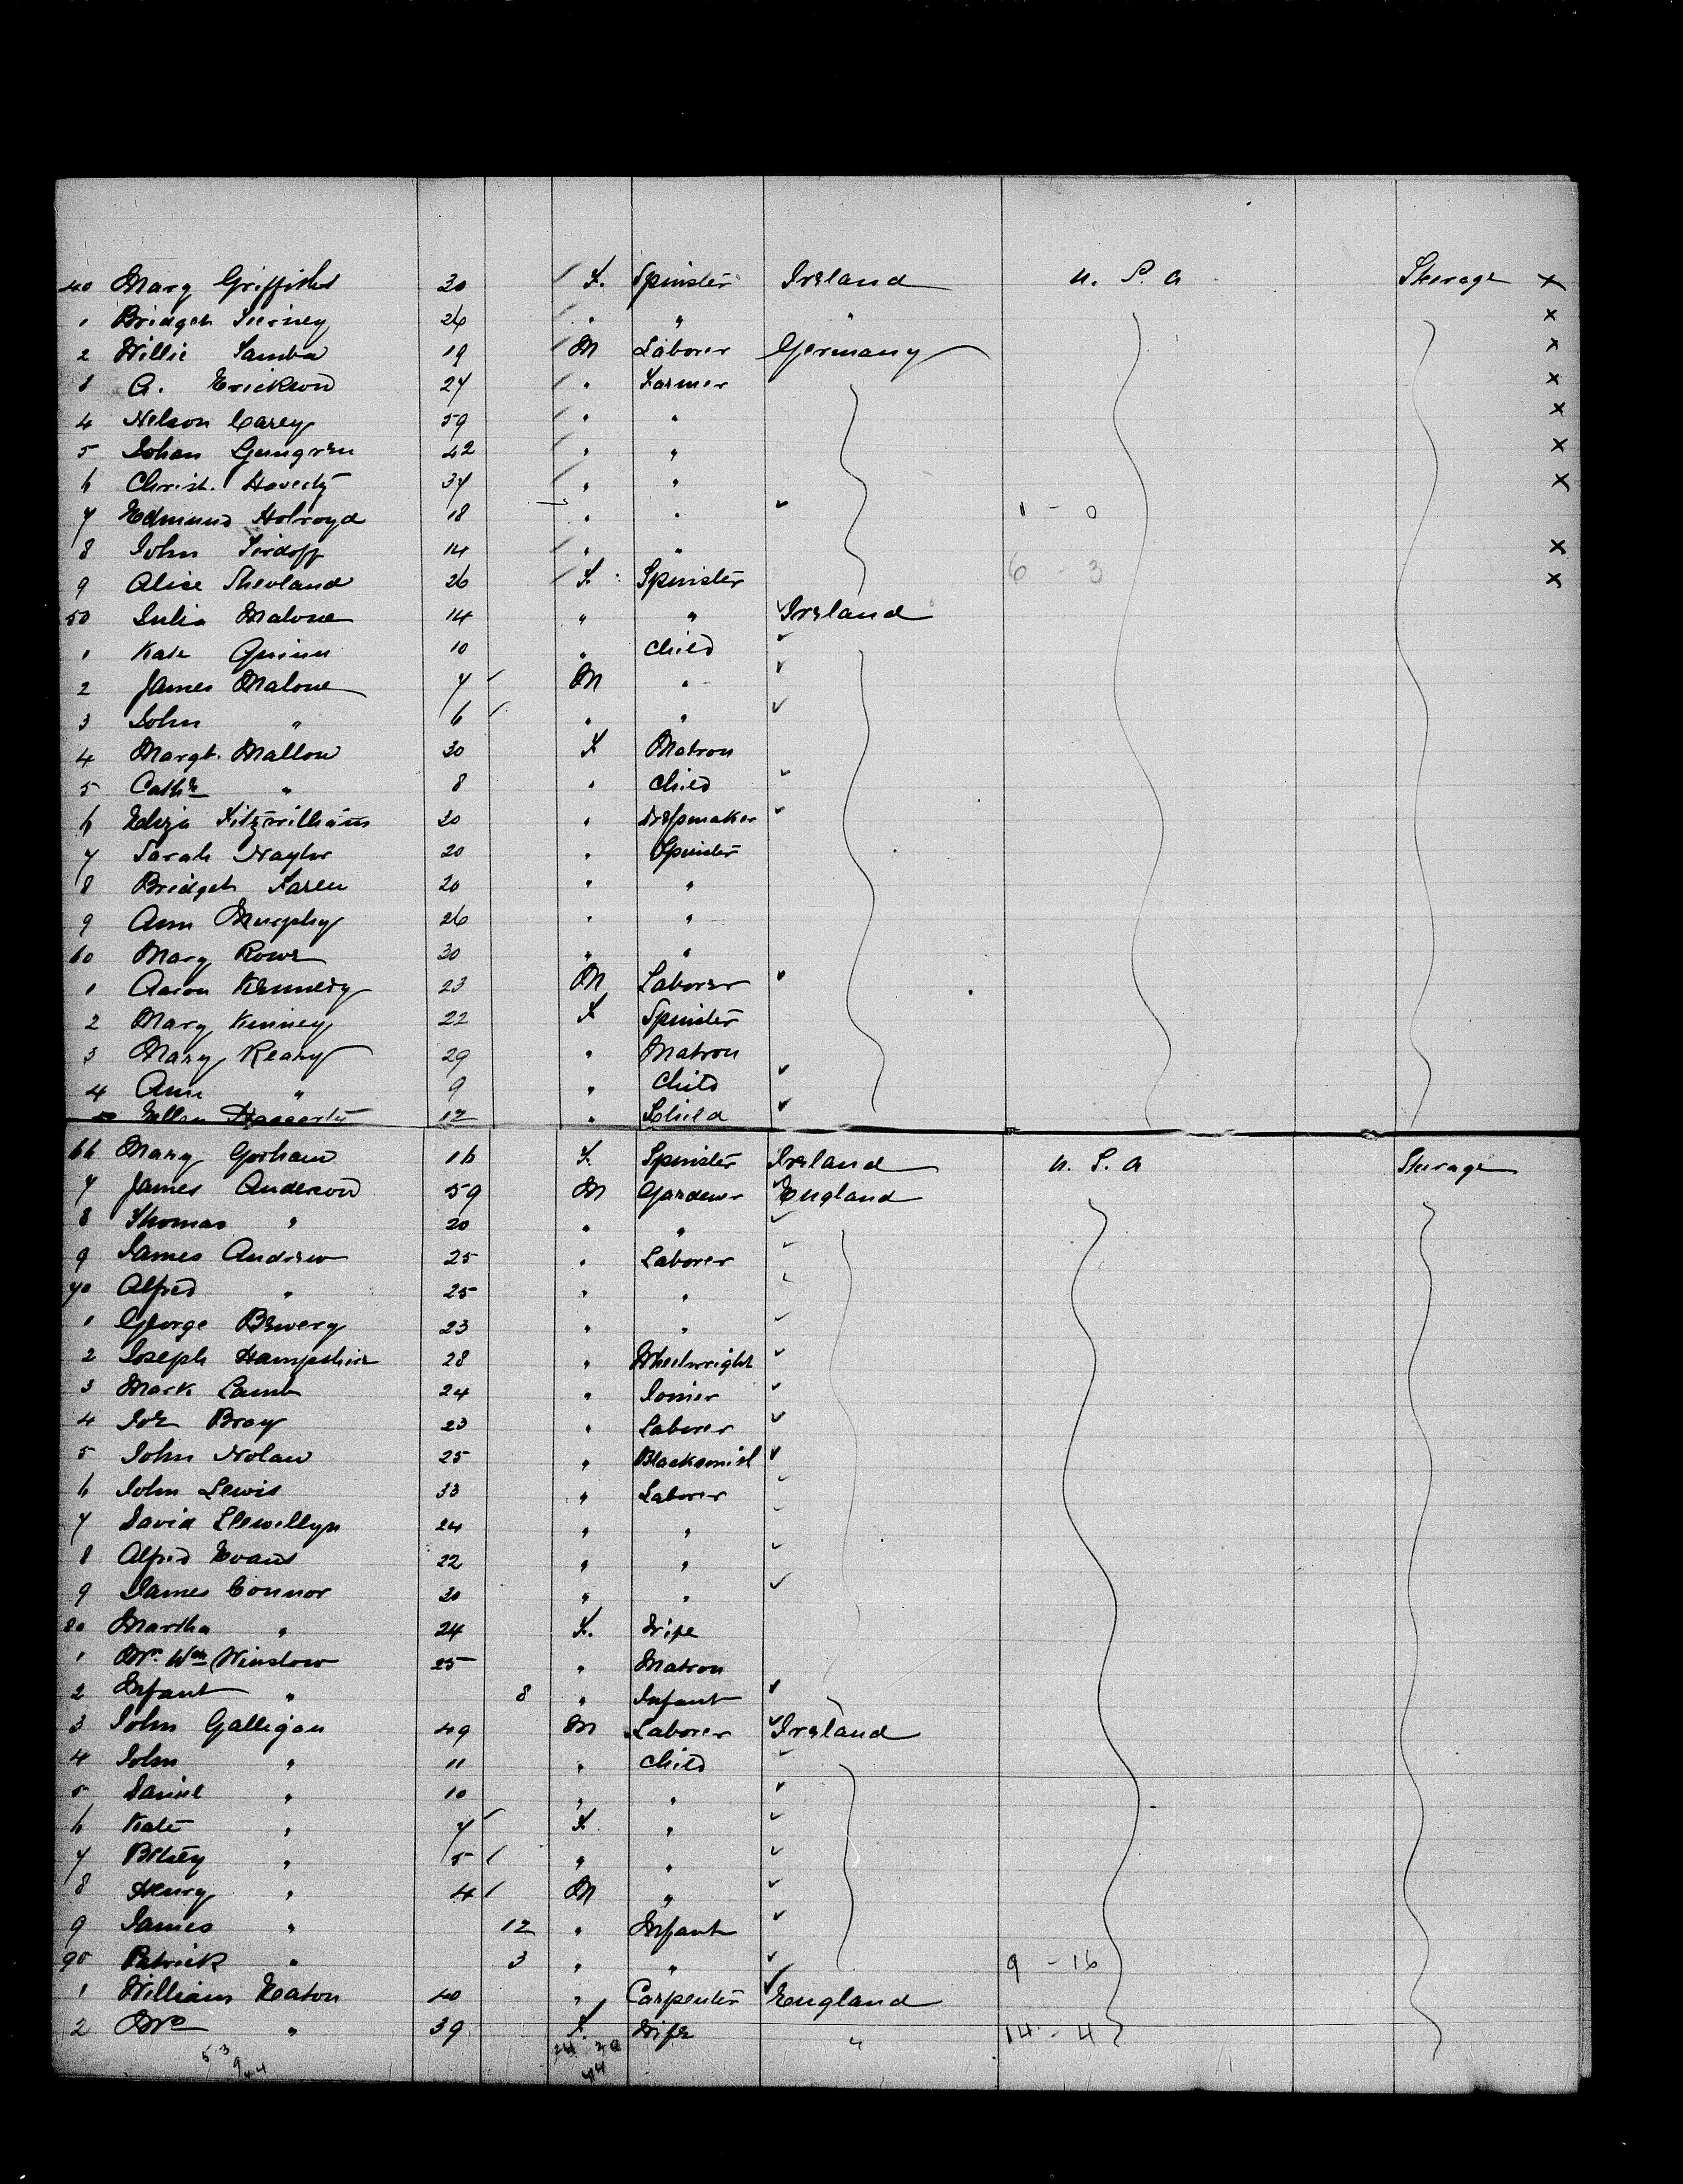 40 Mary Griffiths 20 F. Spinster Ireland U.S.A Steerage x
1 Bridget Tierney 26 " " " x
2 Willie Samba 19 M Laborer Germany x
3 A. Erickson 27 " Farmer x
4 Nelson Carey 59 " " x
5 Johan Ljungren 42 " " x
6 Christ. Haverty 37 " " x
7 Edmund Holroyd 18 " " 1 - 0
8 John 14 " " x
9 Alice 26 F. Spinster 6 - 3 x
50 Julia Malone 14 " " Ireland
1 Kate Quinn 10 " Child
2 James Malone 7 M "
3 John " 6 " "
4 Margt. Mallon 30 F Matron
5 Cathe " 8 " Child
6 Eliza Fitzwilliam 20 " Dressmaker
7 Sarah Naylor 20 " Spinster
8 Bridget Faren 20 " "
9 Ann Murphy 26 " "
60 Mary Rowe 30 " "
1 Aaron Kennedy 23 M Laborer
2 Mary Kinney 22 F Spinster
3 Mary Keary 29 " Matron
4 Ann " 9 " Child
5 Ellen Haggerty 12 " Child
66 Mary Gorham 16 F. Spinster Ireland U.S.A Steerage
7 James Anderson 59 M Gardener England
8 Thomas " 20 " "
9 James Andrew 25 " Laborer
70 Alfred " 25 " "
1 George Brewery 23 " "
2 Joseph Hampshire 28 " Wheelwright
3 Mark Lamb 24 " Joiner
4 Joe Bray 23 " Laborer
5 John Nolan 25 " Blacksmith
6 John Lewis 33 " Laborer
7 David Llewellyn 24 " "
8 Alfred Evans 22 " "
9 James Connor 30 " "
80 Martha " 24 F. Wife
1 Mrs. Wm Winslow 25 " Matron
2 Infant " 8 " Infant
3 John Galligan 49 M Laborer Ireland
4 John " 11 " Child
5 Daniel " 10 " "
6 Kate " 7 F "
7 Betsey " 5 " "
8 Henry " 4 M "
9 James " 12 " Infant
90 Patrick " 3 " " 9 - 16
1 William Heaton 40 " Carpenter England
2 Mrs " 39 F. Wife " 14 - 4
53 24 20
9 44 44